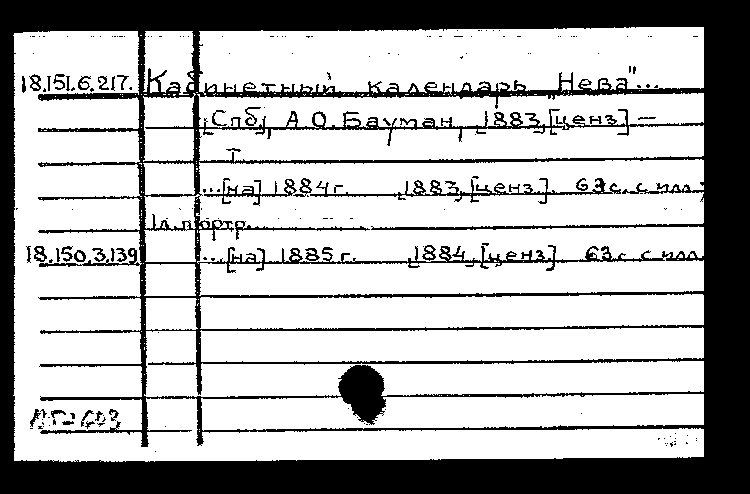 18.151.6.217. Кабинетный календарь „Нева"...
[Спб], А.О. Бауман, 1883, [ценз] —
Т
...[на] 1884 г. 1883, [ценз]. 63 с. с илл.,
1 л. портр.
18.150.3.139 ...[на] 1885 г. [1884, [ценз]. 63 с с илл.